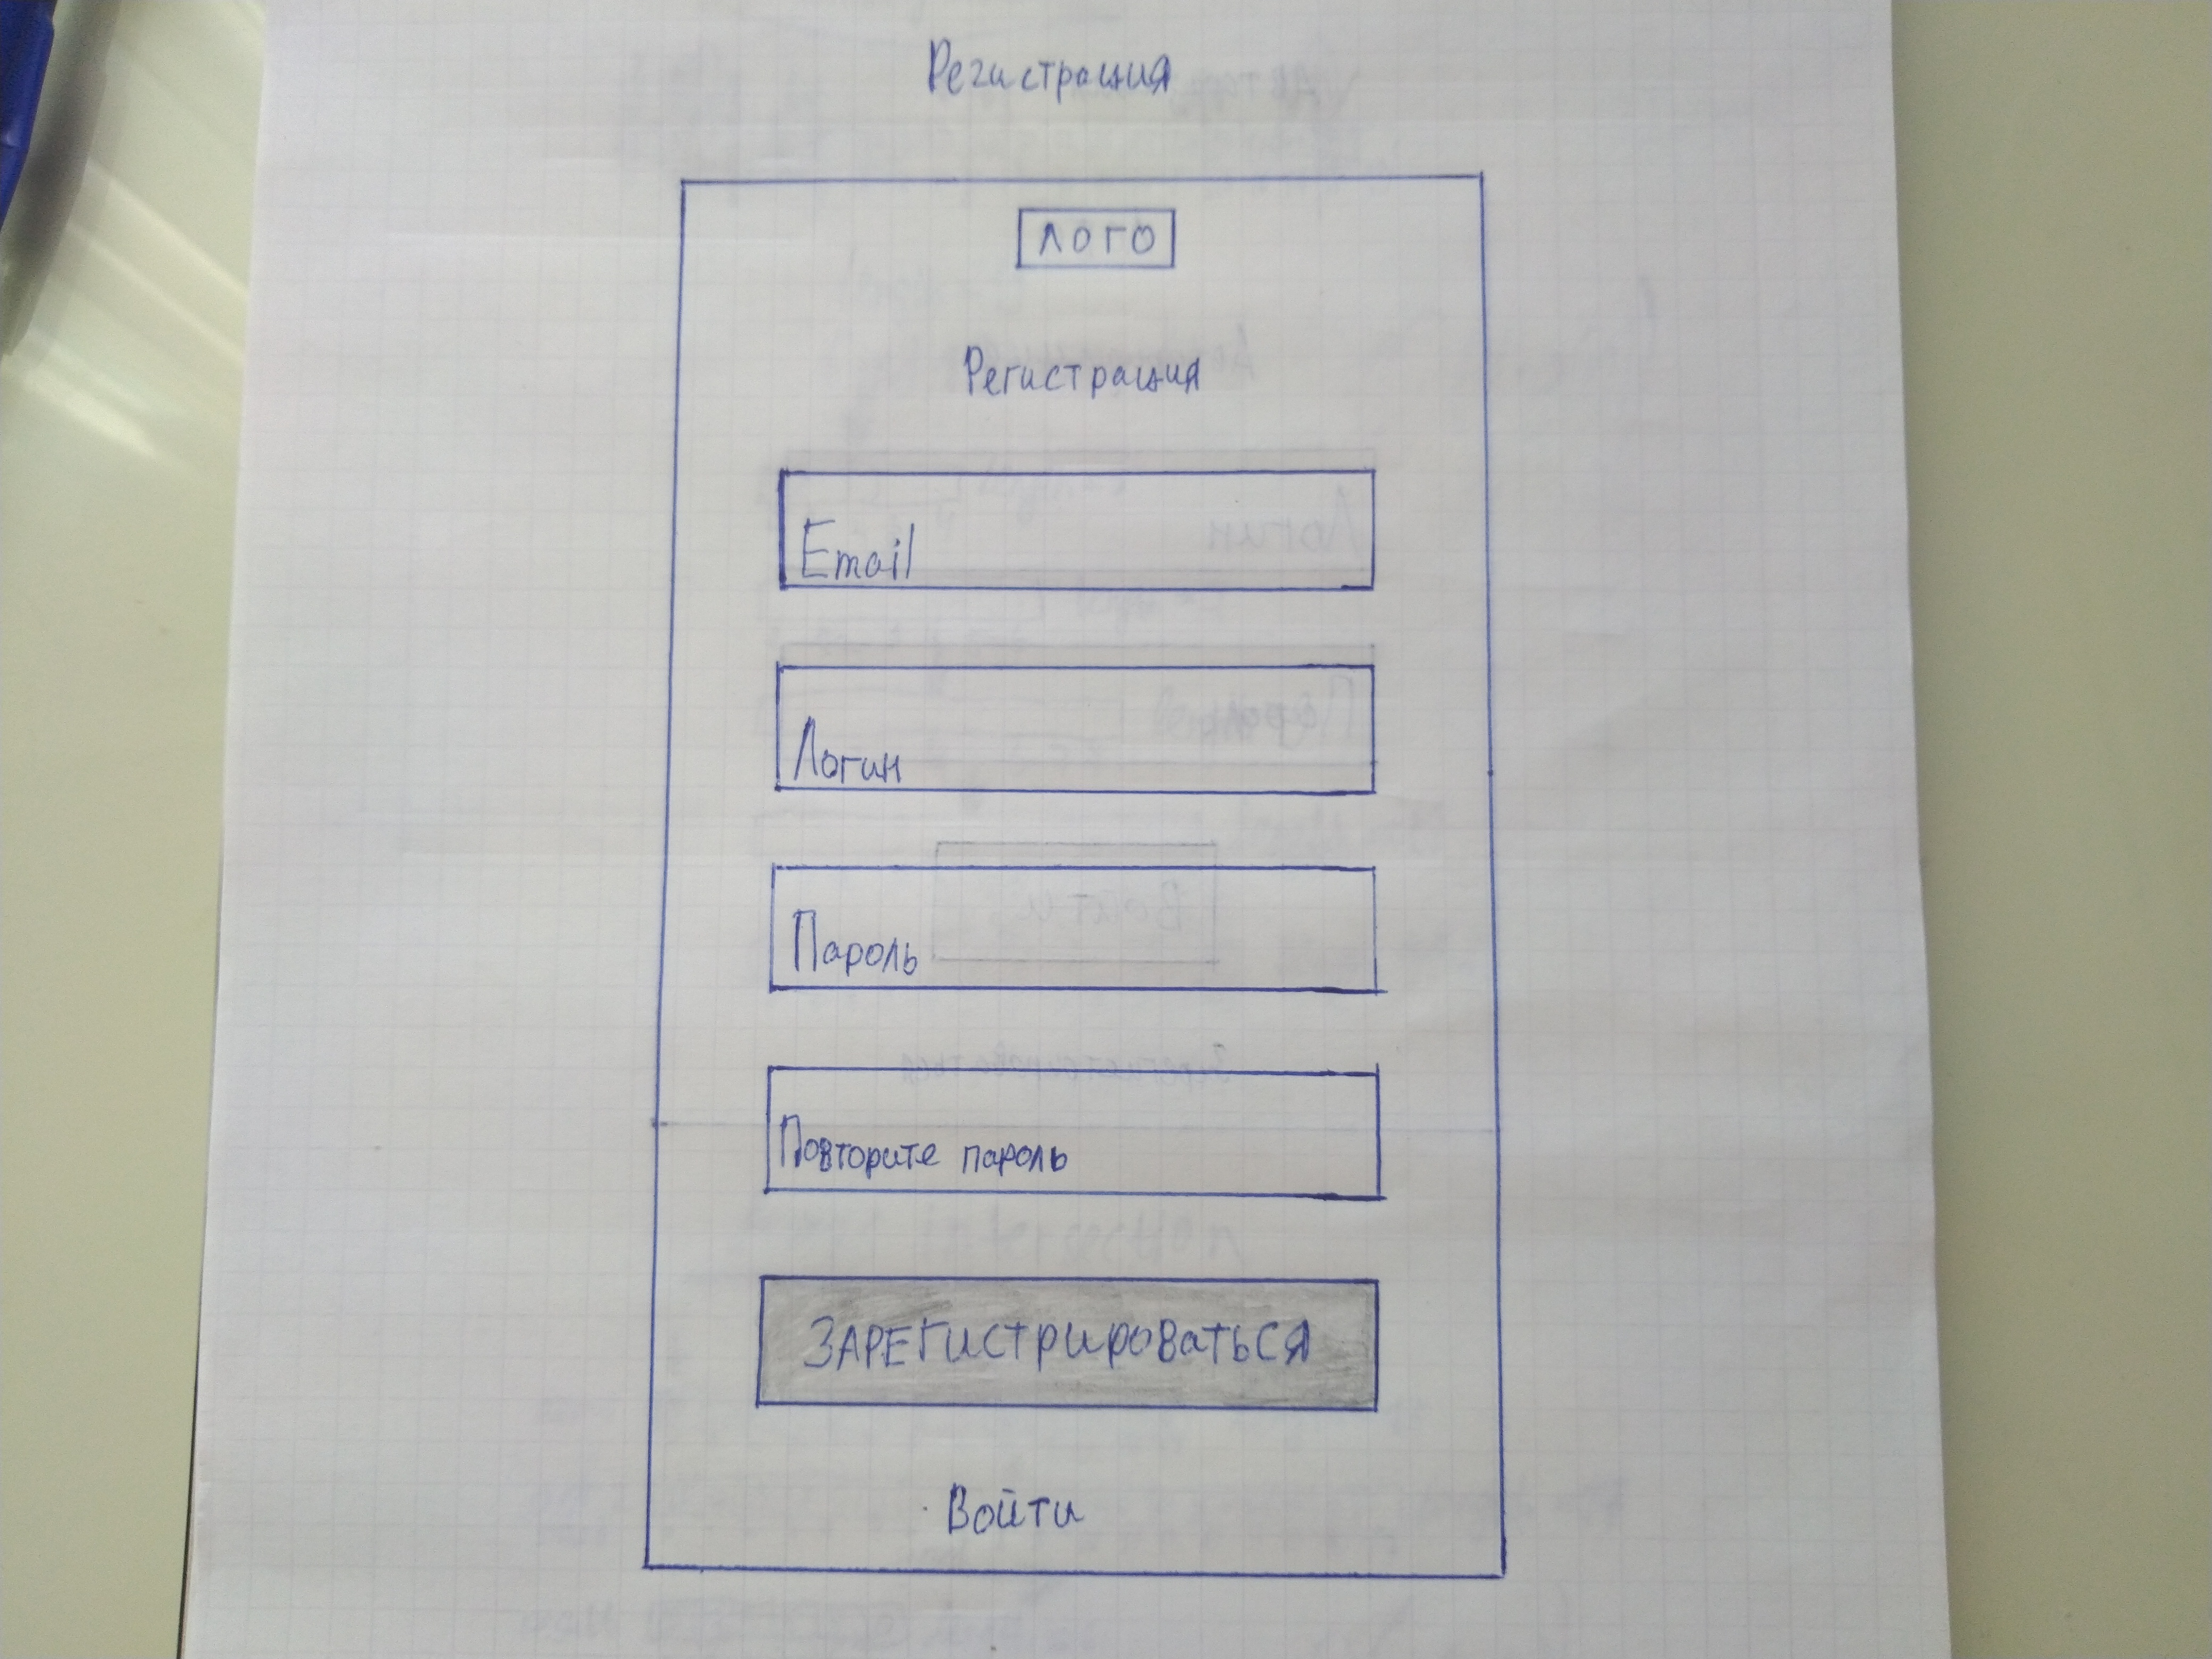 Регистрация
ЛОГО
Регистрация
Email
Логин
Пароль
Повторите пароль
ЗАРЕГИСТРИРОВАТЬСЯ
Войти